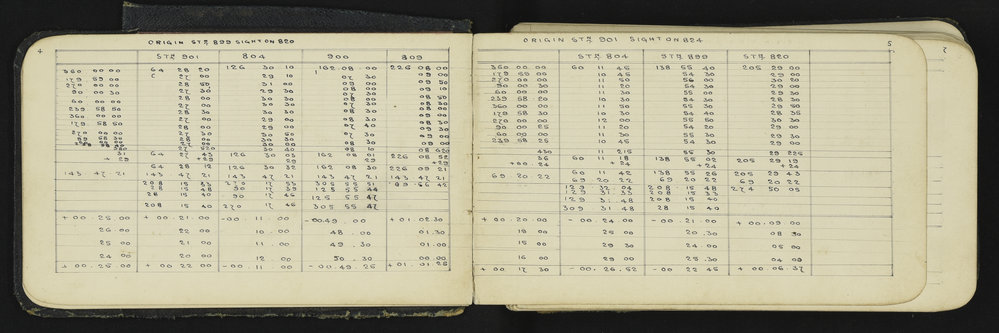 4
ORIGIN STN 899 SIGHT ON 820
STN 901 804 900 809
360 00 00 64 28 20 126 30 10 162 08 00 226 08 00
179 59 00 27 00 29 10 07 30 09 00
270 00 00 28 50 31 00 09 00 09 50
90 00 30 27 30 29 30 08 00 09 10
60 00 00 28 00 30 30 07 30 08 50
239 58 50 28 30 30 30 08 30 08 30
360 00 00 27 00 28 00 08 00 09 30
179 58 50 28 00 29 00 07 40 08 30
27 30 30 50 07 30 09 30
64 27 43 126 30 03 162 08 01 226 08 52
+ 29 +29 +29 29 +29
64 28 12 126 30 32 162 08 30 226 09 21
143 47 21 143 47 21 143 47 21 143 47 21 143 47 21
208 15 33 270 17 53 305 55 51
28 15 48 90 17 39 125 55 44
28 15 40 90 17 46 125 55 47
208 15 40 270 17 46 305 55 47
+00.25.00 +00.21.00 -00.11.00 -00.49.00 +01.02.30
26.00 22 00 10.00 48.00 01.30
25 00 21 00 11 00 49.30 01.00
24 00 20 00 12.00 50.30 00.00
+00.25.00 +00 22 00 -00.11.00 -00.49.25 +01.01.25
5
ORIGIN STN 901 SIGHT ON 824
STN 804 STN 899 STN 820
360 00 00 60 11 45 138 55 40 205 29 00
179 59 00 10 45 54 30 29 00
270 00 00 11 50 56 00 30 20
90 00 30 11 20 54 30 29 00
60 00 00 11 00 55 00 29 30
239 58 20 10 30 54 30 28 30
360 00 00 11 30 55 00 29 50
179 58 30 10 30 54 40 28 35
270 00 00 12 00 55 50 30 30
90 00 25 11 20 54 20 29 00
60 00 00 11 30 55 30 29 30
239 58 25 10 45 54 30 29 00
36 60 11 18 138 55 02 205 29 19
+00 24 +24 +24 +24
60 11 42 138 55 26 205 29 43
69 20 22 69 20 22 69 20 22 69 20 22
129 32 04 208 15 48 274 50 05
129 31 33 208 15 33
129 31 48 208 15 40
309 31 48 28 15 40
+00.20.00 -00.24.00 -00.21.00 +00.09.00
18 00 25 00 20.30 08 30
15 00 29 30 24.00 05 00
16 00 29 00 25.30 04 09
+00 17 30 -00.26.52 -00 22 45 +00 06.37
7